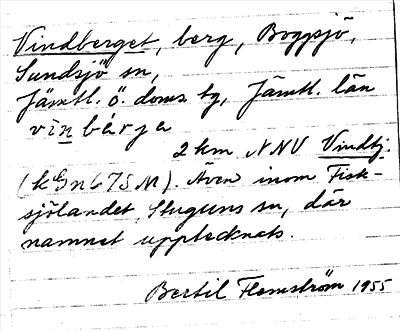 Vindberget, berg, Boggsjö,
Sundsjö sn,
Jämtl. ö. doms. tg, Jämtl. län
vinbärja
2 km NNV Vindtj.
Även inom Fisk-
sjölandet, Stuguns sn, där
namnet upptecknats.
Bertil Flemström 1955